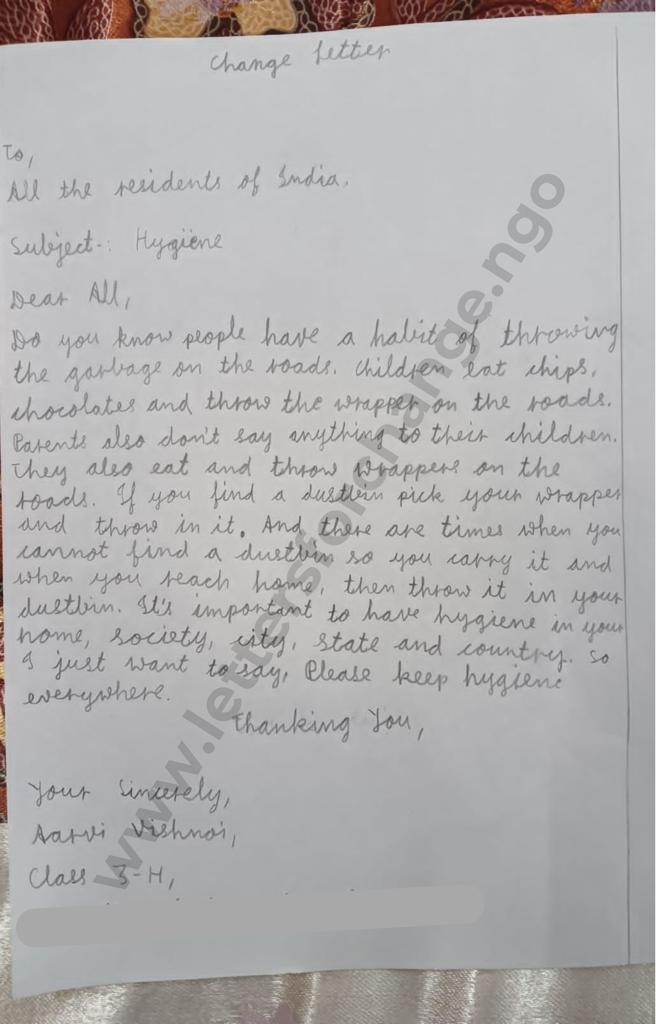 Change Letter
To,
All the residents of India.
Subject-: Hygiene
Dear All,
Do you know people have a habit of throwing
the garbage on the roads. Children eat chips,
chocolates and throw the wrapper on the roads.
Parents also don't say anything to their children.
They also eat and throw wrappers on the
roads. If you find a dustbin pick your wrapper
and throw in it. And there are times when you
cannot find a dustbin so you carry it and
when you reach home, then throw it in your
dustbin. It's important to have hygiene in your
home, society, city, state and country. So
I just want to say, Please keep hygiene
everywhere.
Thanking You,
Your Sincerely,
Aarvi Vishnoi,
Class 3-H,
www.lettersforchange.ngo